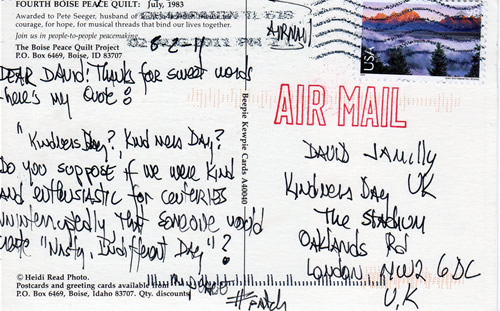 FOURTH BOISE PEACE QUILT: July, 1983
Awarded to Pete Seeger, husband of
courage, for hope, for musical threads that bind our lives together.
Join us in people-to-people peacemaking.
The Boise Peace Quilt Project
P.O. Box 6469, Boise, ID 83707
AIRMAIL
USA
DEAR DAVID! THANKS for sweet words
-here's my quote:
"Kindness Day?, Kindness Day?
Do you suppose if we were kind
and enthusiastic for centuries
uninterruptedly that someone would
create "Nasty, Indifferent Day"?
© Heidi Read Photo.
Postcards and greeting cards available from
P.O. Box 6469, Boise, Idaho 83707. Qty. discounts
Beepie Kewpie Cards A40040
AIR MAIL
DAVID JAMILLY
KINDNESS DAY UK
THE STADIUM
OAKLANDS RD
LONDON NW2 6DC
U.K